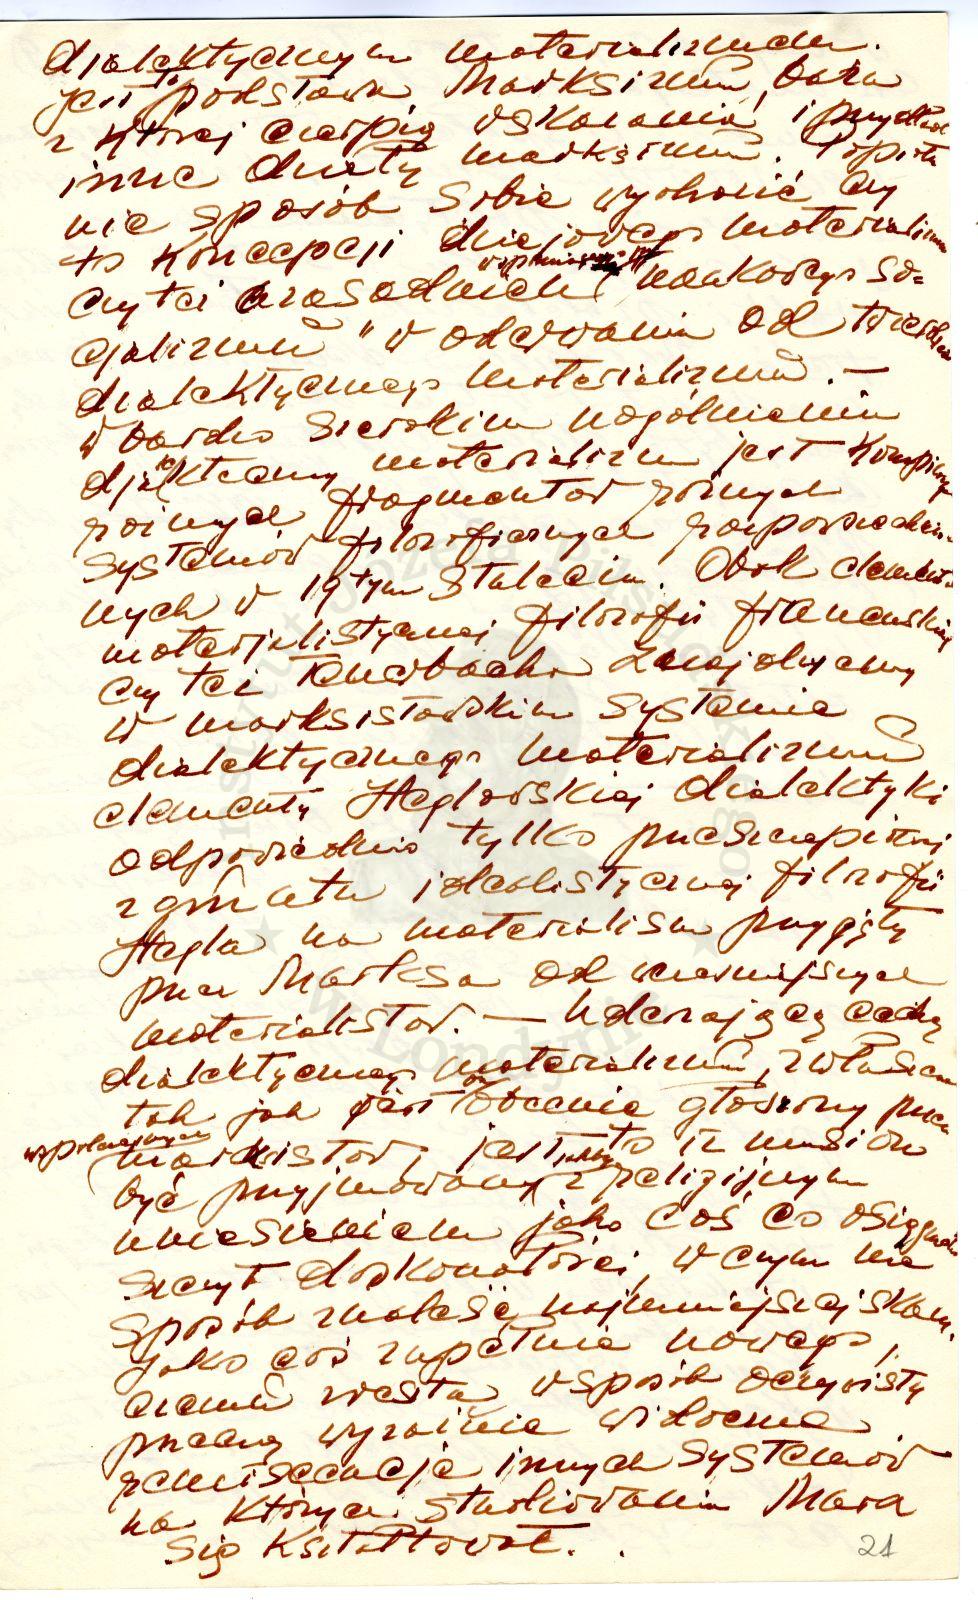 dialektycznym materializmem.
jest podstawą Marksizmu, baza
z której czerpią wskazania i
inne działy marksizmu.
nie sposób sobie wyobrazić czy
to koncepcji dziejowego materializmu
czy też zasadnień naukowego so-
cjalizmu" w oderwaniu od
dialektycznego materializmu. —
W bardzo szerokim uogólnieniu
djalektczny materializm jest
różnych fragmentów różnych
systemów filozoficznych rozpowszechnio-
nych w 19tym stuleciu. Obok elementów
materjalistycznej filozofii francuskiej
czy też Feuerbacha znajdujemy
w marksistowskim systemie
dialektycznego materializmu
elementy Heglowskiej dialektyki
odpowiednio tylko przeszczepionej
z gruntu idealistycznej filozofii
Hegla na materializm przyjęty
przez Marksa od wcześniejszych
materialistów. — Uderzającą cechą
dialektycznego materializmu, zwłaszcza
tak jak jest on obecnie głoszony przez
współczesnych
marksistów, jest to iż musi on
być przyjmowany z religijnym
uniesieniem jako coś co osiągnęło
szczyt doskonałości, w czym nie
sposób znaleść najmniejszej skazy,
jako coś zupełnie nowego,
czemu zresztą w sposób oczywisty
przeczą wyraźnie widoczne
reminiscencje innych systemów
na których studiowaniu Marx
się kształtował.
21
Instytut Józefa Piłsudskiego
w Londynie